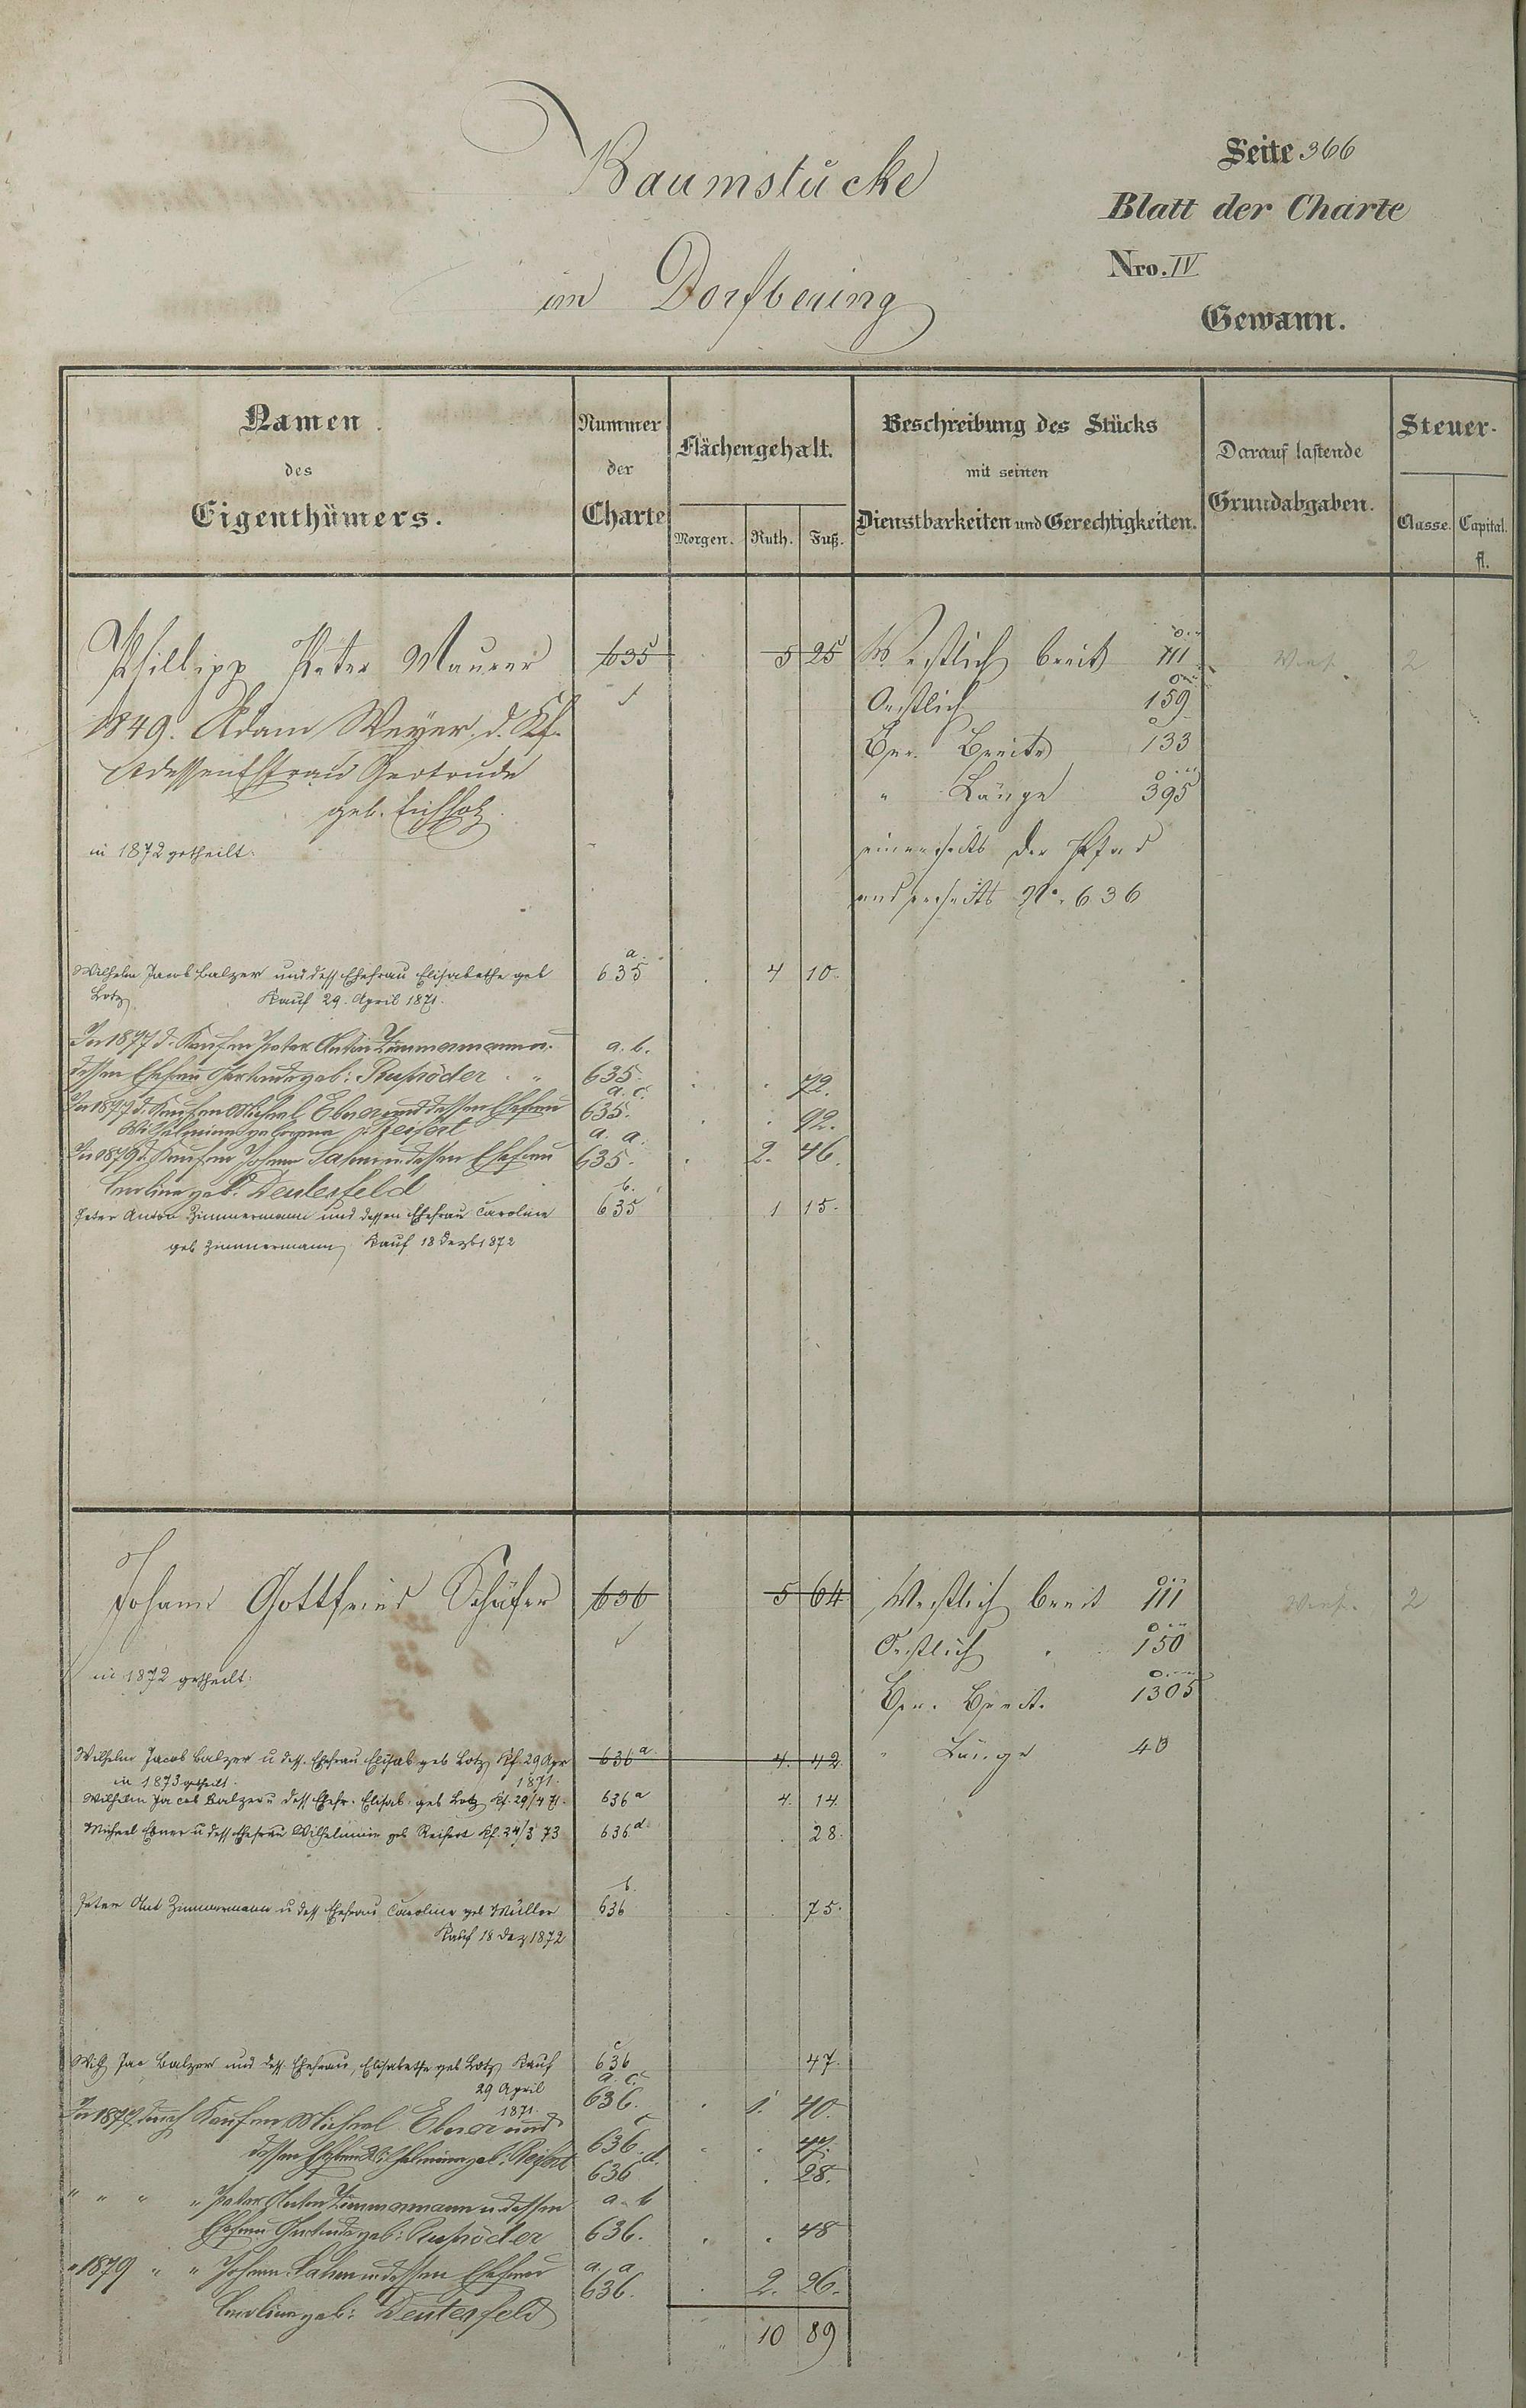 Baumstücke
im Dorfbering
Seite 366
Blatt der Charte
Nro. IV
Gewann.
Namen
des
Eigenthümers.
Nummer
der
Charte
Flächengehalt.
Morgen. Ruth. Fuß.
Beschreibung des Stücks
mit seinen
Dienstbarkeiten und Gerechtigkeiten.
Darauf lastende
Grundabgaben.
Steuer-
Classe. Capital.
fl.
Phillipp Peter Maurer 635 5 25 Westlich breit 111 2
1849. Adam Weyer d. Kf. Oestlich 159
Ehfrau Gertrude Ber. Breite 133
geb. Eichholz " Länge 395
in 1872 getheilt. einerseits der Pfad
anderseits No. 636
Wilhelm Jacob Balzer und dess Ehefrau Elisabethe geb a. 635 4 10.
Lotz Kauf 29. April 1871.
In 1877 d. Kaufen Peter Anton Zimmermann a. b.
dessen Ehefrau Gertrude geb: 635. 72.
In 1877 d. Kaufen Michael Ebner und dessen Ehefrau a. c. 635. 92.
Wilhelmine geborene Reifert
In 1879 d. Kaufen Johann Sahm u. dessen Ehefrau a. a. 635. 2. 46.
Caroline geb. Deutesfeld
Peter Anton Zimmermann und dessen Ehefrau Caroline b. 635 1 15.
geb Zimmermann Kauf 18 Dezb 1872
Johann Gottfried Schäfer 636 5 64 Westlich breit 111 2
Oestlich " 150
in 1872 getheilt. Ber. Breit. 1305
Wilhelm Jacob Balzer u dess. Ehefrau Elisab geb Lotz Kf. 29 Apr 636 a 4. 42 " Länge 43
in 1873 getheilt. 1871.
Wilhelm Jacob Balzer u dess Ehefr. Elisab. geb Lotz Kf. 29/4 71. 636 a 4. 14.
Michael Ebner u dess Ehefrau Wilhelmine geb Reifert Kf. 24/3 73 636 d 28.
Peter Ant Zimmermann u dess Ehefrau Caroline geb Müller b. 636 75.
Kauf 18 Dez 1872
Wilh Jac Balzer und dess. Ehefrau, Elisabethe geb Lotz Kauf c 636 47.
29 April
1871.
In 1877 durch Kaufen Michael Ebner und a. c. 636. 1. 40.
dessen Ehefrau Wilhelmine geb: Reifert c 636. 47.
d. 636 28.
" " " " Peter Anton Zimmermann u dessen a. b
Ehefrau Gertrude geb: 636. 48
" 1879 " " Johann Sahm u dessen Ehefrau a. a 636. 2. 26.
Caroline geb: Deutesfeld
10 89